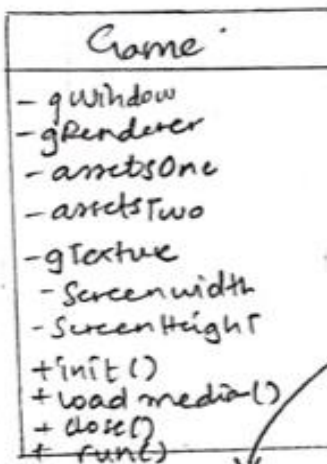 Game
- gWindow
- gRenderer
- assetsOne
- assetsTwo
- gTexture
- Screenwidth
- ScreenHeight
+ init()
+ load media()
+ close()
+ run()